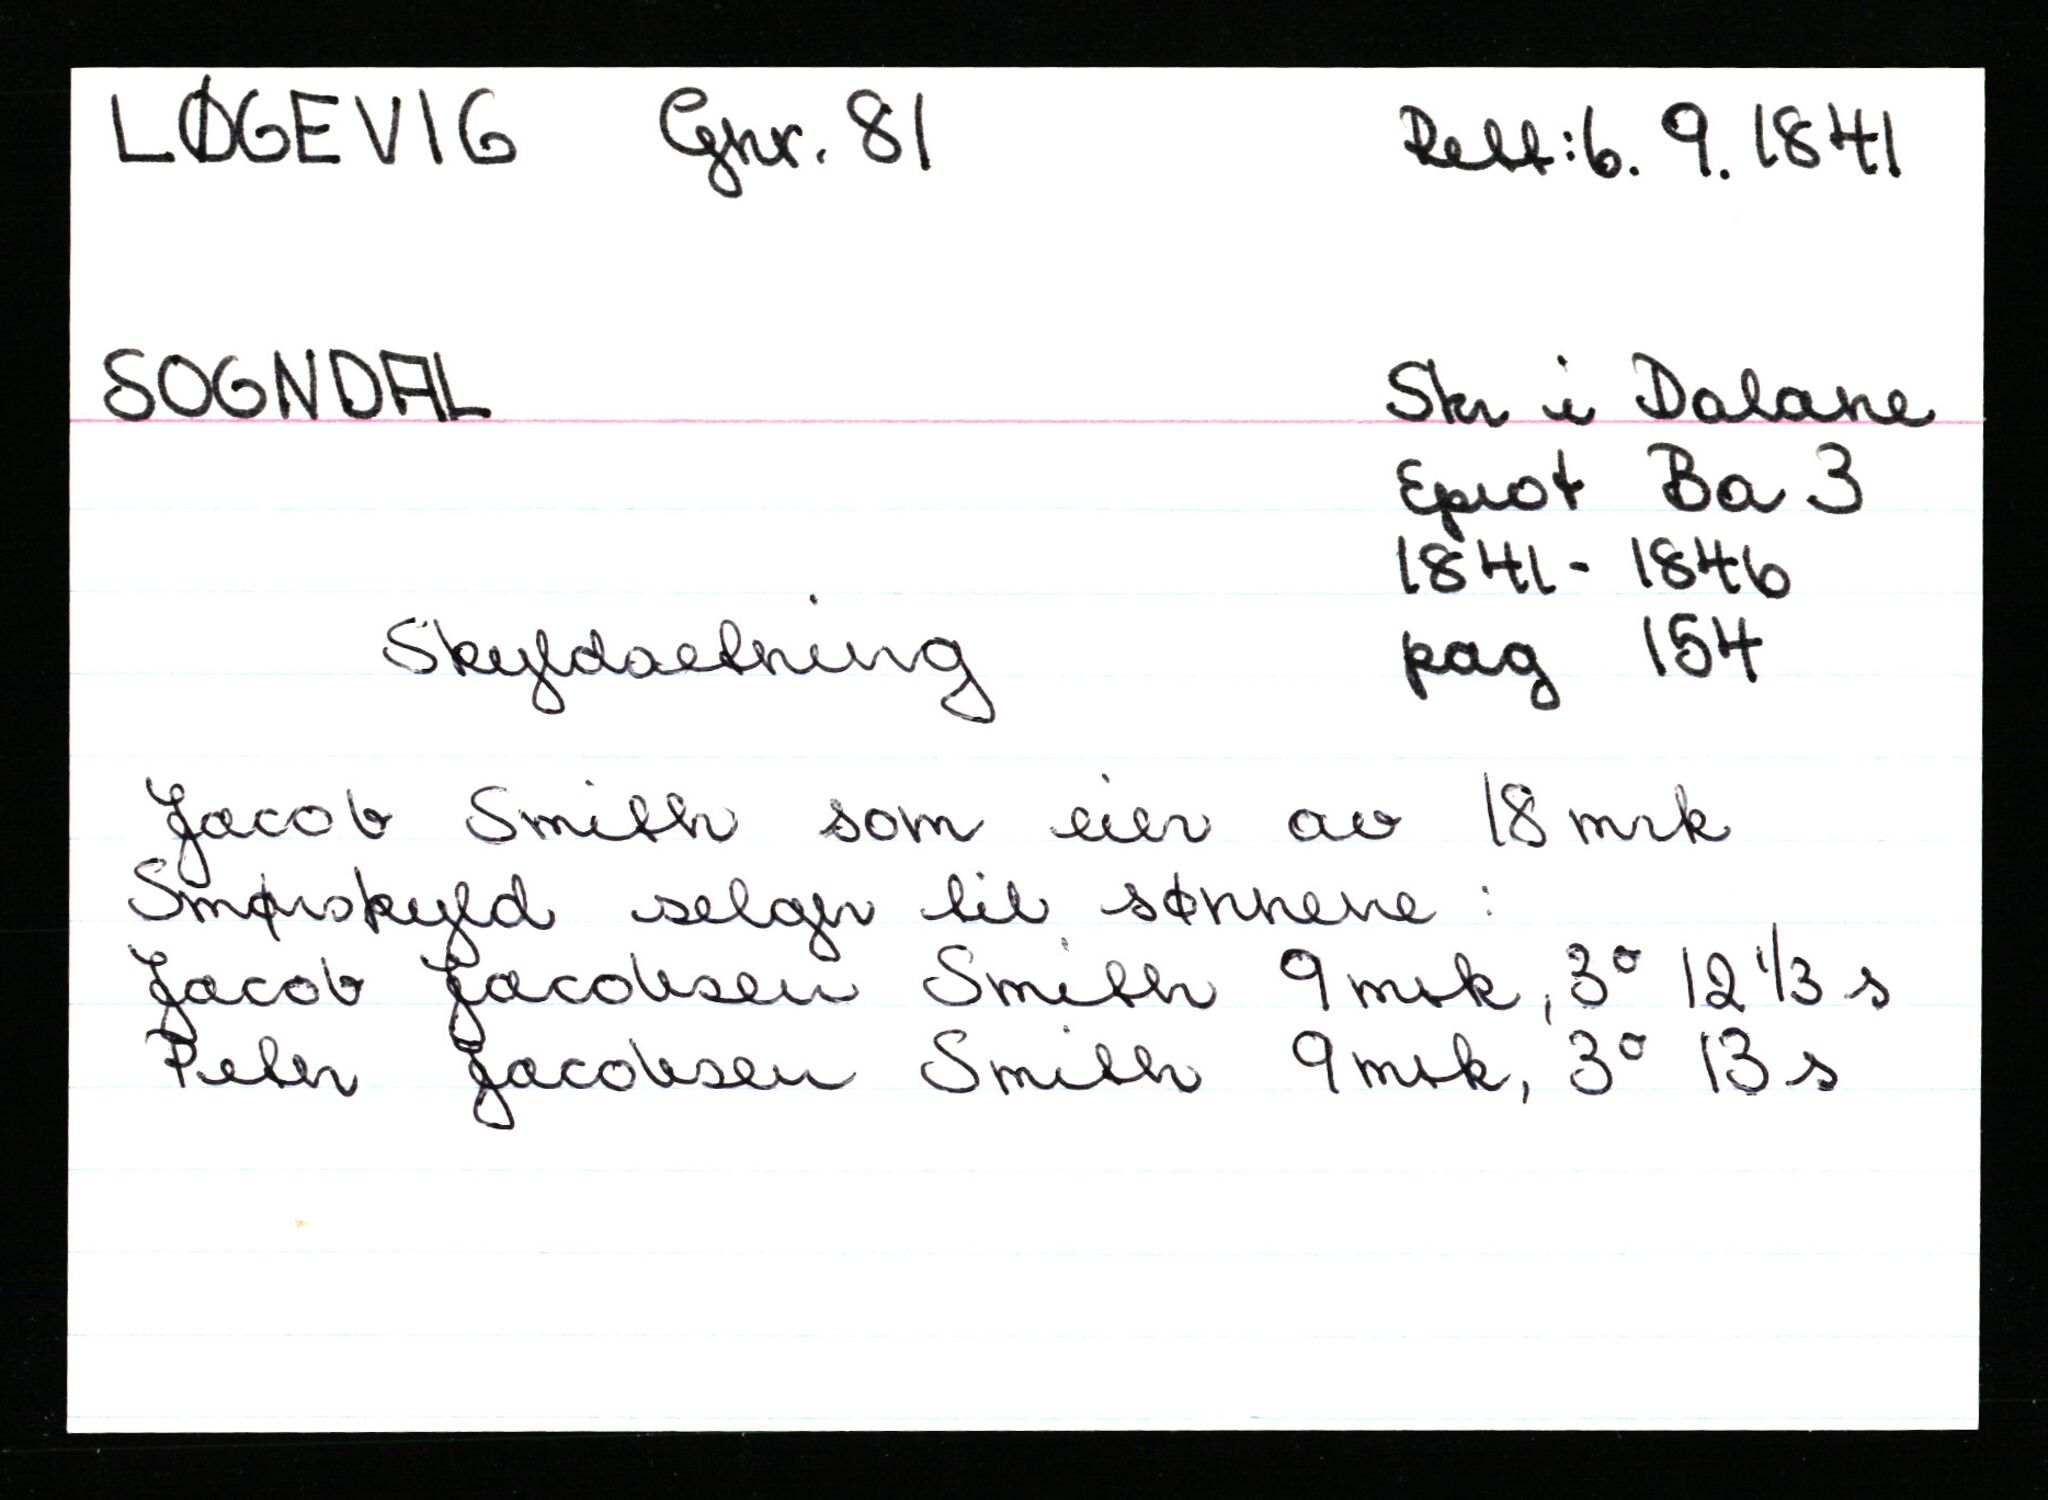 LØGEVIG Gnr. 81 Rett: 6. 9. 1841
SOGNDAL Skr i Dalane
Eprot Ba 3
1841 - 1846
pag 154
Skyldsetning
Jacob Smith som eier av 18 mrk
Smørskyld selger til sønnene :
Jacob Jacobsen Smith 9 mrk, 3º 12 1/3 s
Peter Jacobsen Smith 9 mrk, 3º 13 s